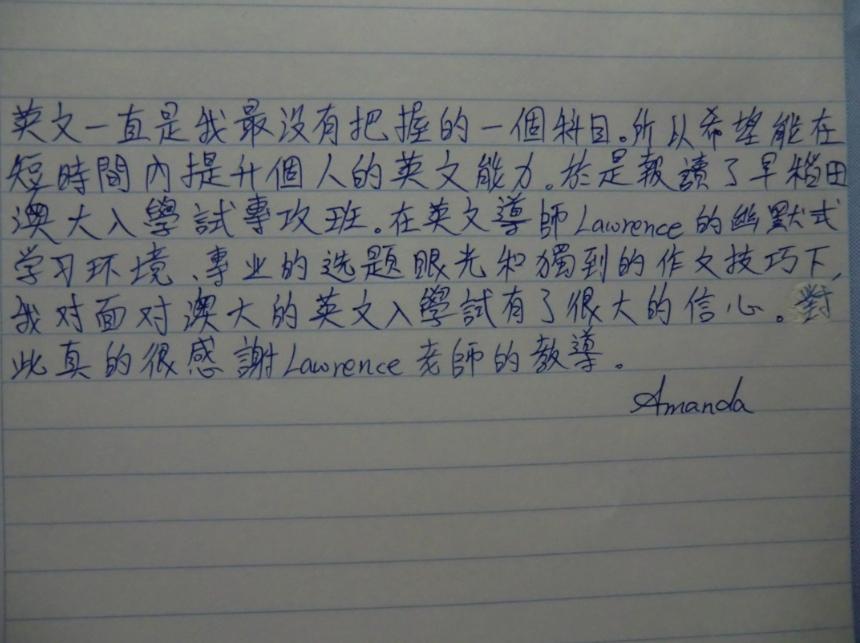 英文一直是我最没有把握的一個科目。所以希望能在
短時間內提升個人的英文能力。於是報讀了早稻田
澳大入學試專攻班。在英文導師Lawrence的幽默式
学习环境、專业的选题眼光和獨到的作文技巧下,
我对面对澳大的英文入學試有了很大的信心。對
此真的很感謝Lawrence老師的教導。
Amanda